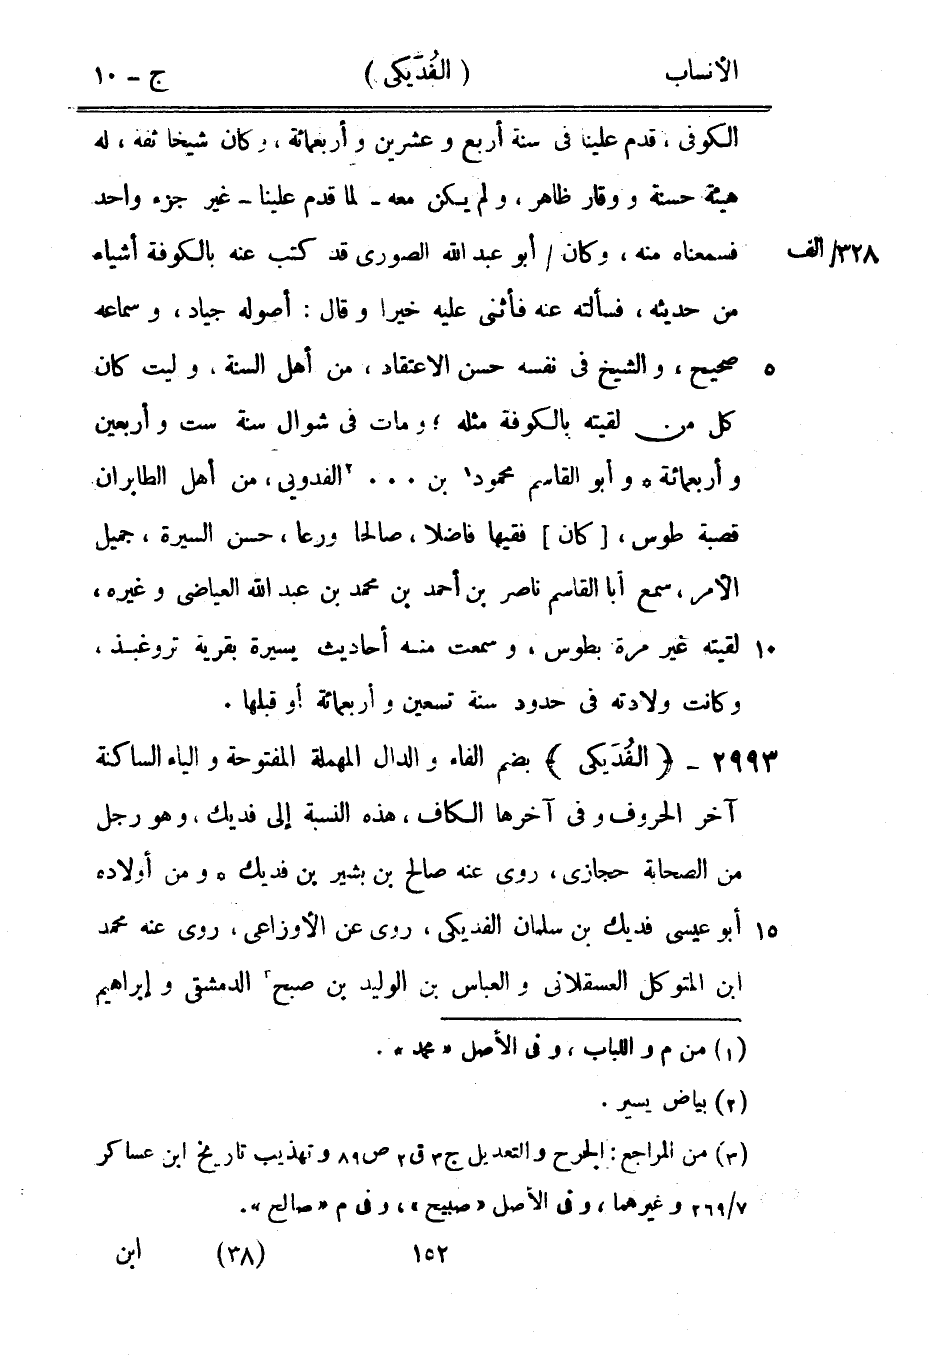 الأنساب ( الفُدَيكى ) ج - ١٠
الكوفى ، قدم علينا فى سنة أربع و عشرين و أربعمائة ، و كان شيخا ثقة ، له
هيئة حسنة و وقار ظاهر ، و لم يكن معه - لما قدم علينا - غير جزء واحد
٣٢٨/ الف فسمعناه منه ، و كان / أبو عبد الله الصورى قد كتب عنه بالكوفة أشياء
من حديثه ، فسألته عنه فأثنى عليه خيرا و قال : أصوله جياد ، و سماعه
٥ صحيح ، و الشيخ فى نفسه حسن الاعتقاد ، من أهل السنة ، و ليت كان
كل من لقيته بالكوفة مثله ؛ و مات فى شوال سنة ست و أربعين
و أربعمائة * و أبو القاسم محمود١ بن ٠٠٠ ٢ الفدويى ، من أهل الطابران
قصبة طوس ، [ كان ] فقيها فاضلا ، صالحا ورعا ، حسن السيرة ، جميل
الأمر ، سمع أبا القاسم ناصر بن أحمد بن محمد بن عبد الله العياضى و غيره ،
١٠ لقيته غير مرة بطوس ، و سمعت منه أحاديث يسيرة بقرية تروغبذ ،
و كانت ولادته فى حدود سنة تسعين و أربعمائة أو قبلها .
٢٩٩٣ - ﴿ الفُدَيكى ﴾ بضم الفاء و الدال المهملة المفتوحة و الياء الساكنة
آخر الحروف و فى آخرها الكاف ، هذه النسبة إلى فديك ، و هو رجل
من الصحابة حجازى ، روى عنه صالح بن بشير بن فديك * و من أولاده
١٥ أبو عيسى فديك بن سلمان الفديكى ، روى عن الأوزاعى ، روى عنه محمد
ابن المتوكل العسقلانى و العباس بن الوليد بن صبح٣ الدمشقى و إبراهيم
(١) من م و اللباب ، و فى الأصل « محمد » .
(٢) بياض يسير .
(٣) من المراجع : الجرح و التعديل ج ٣ ق ٢ ص ٨٩ و تهذيب تاريخ ابن عساكر
٢٦٩/٧ و غيرهما ، و فى الأصل « صبيح » ، و فى م « صالح » .
١٥٢ (٣٨) ابن